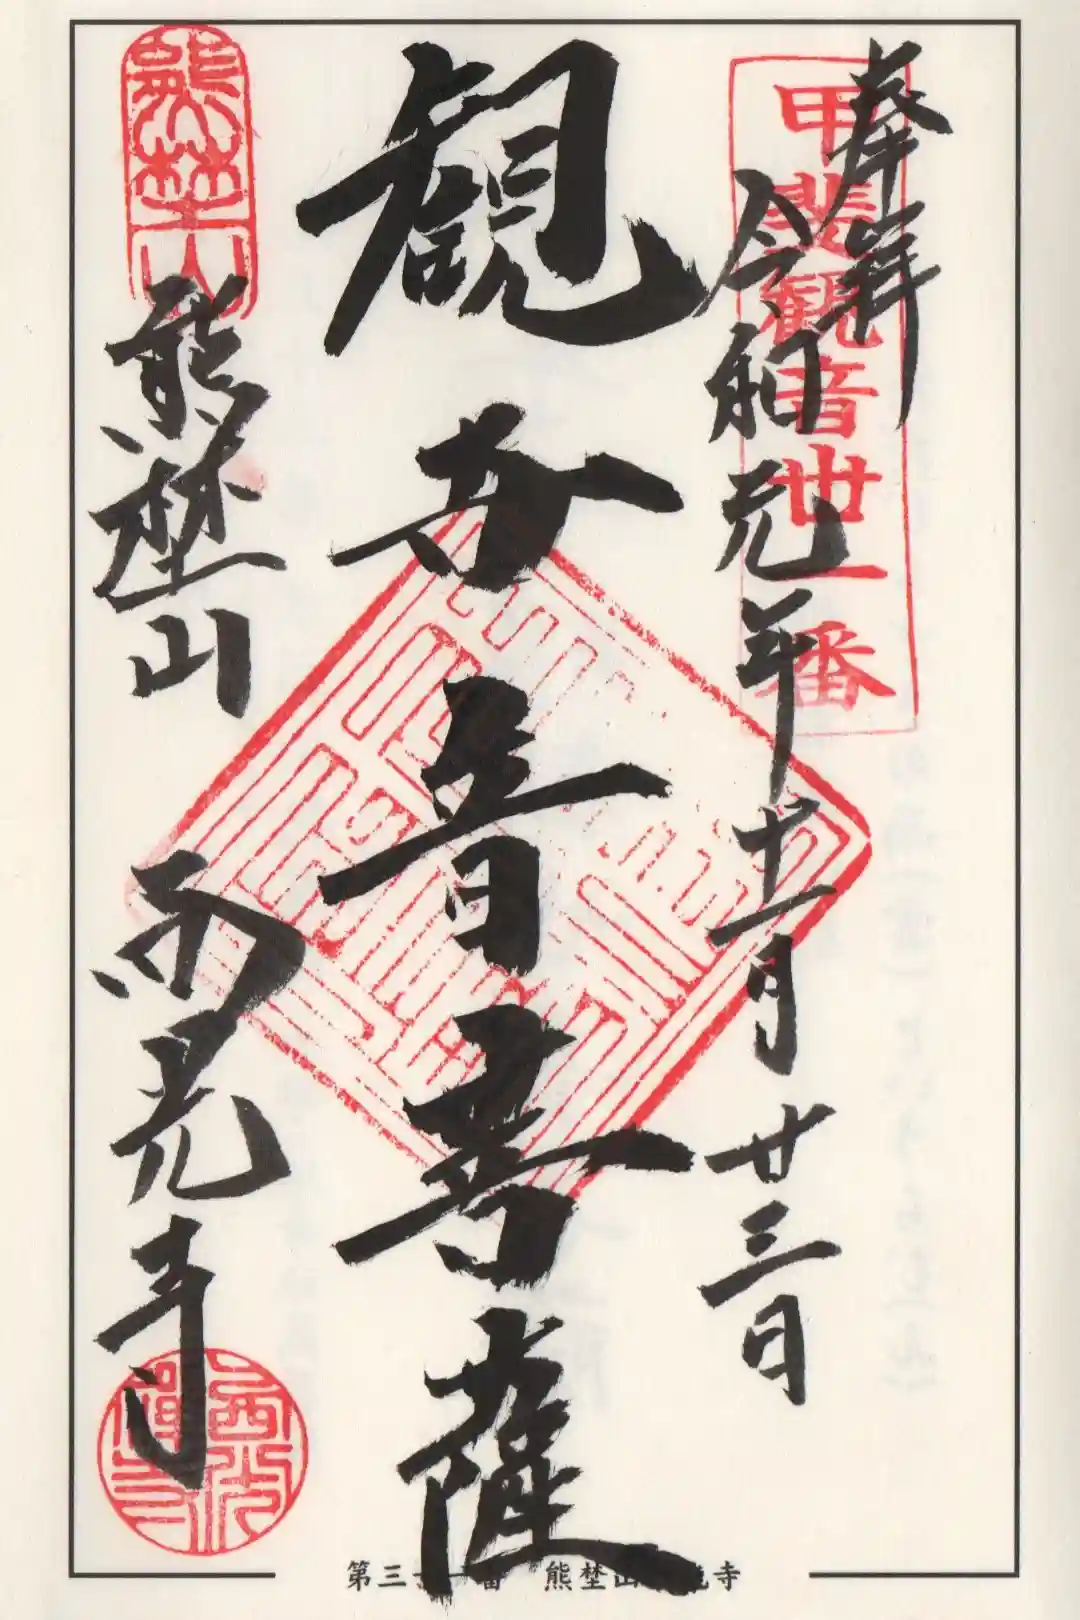 奉拝
甲斐観音世一番
令和元年十一月廿三日
観世音菩薩
熊埜山
熊埜山
西光寺
第三十一番　熊埜山西光寺